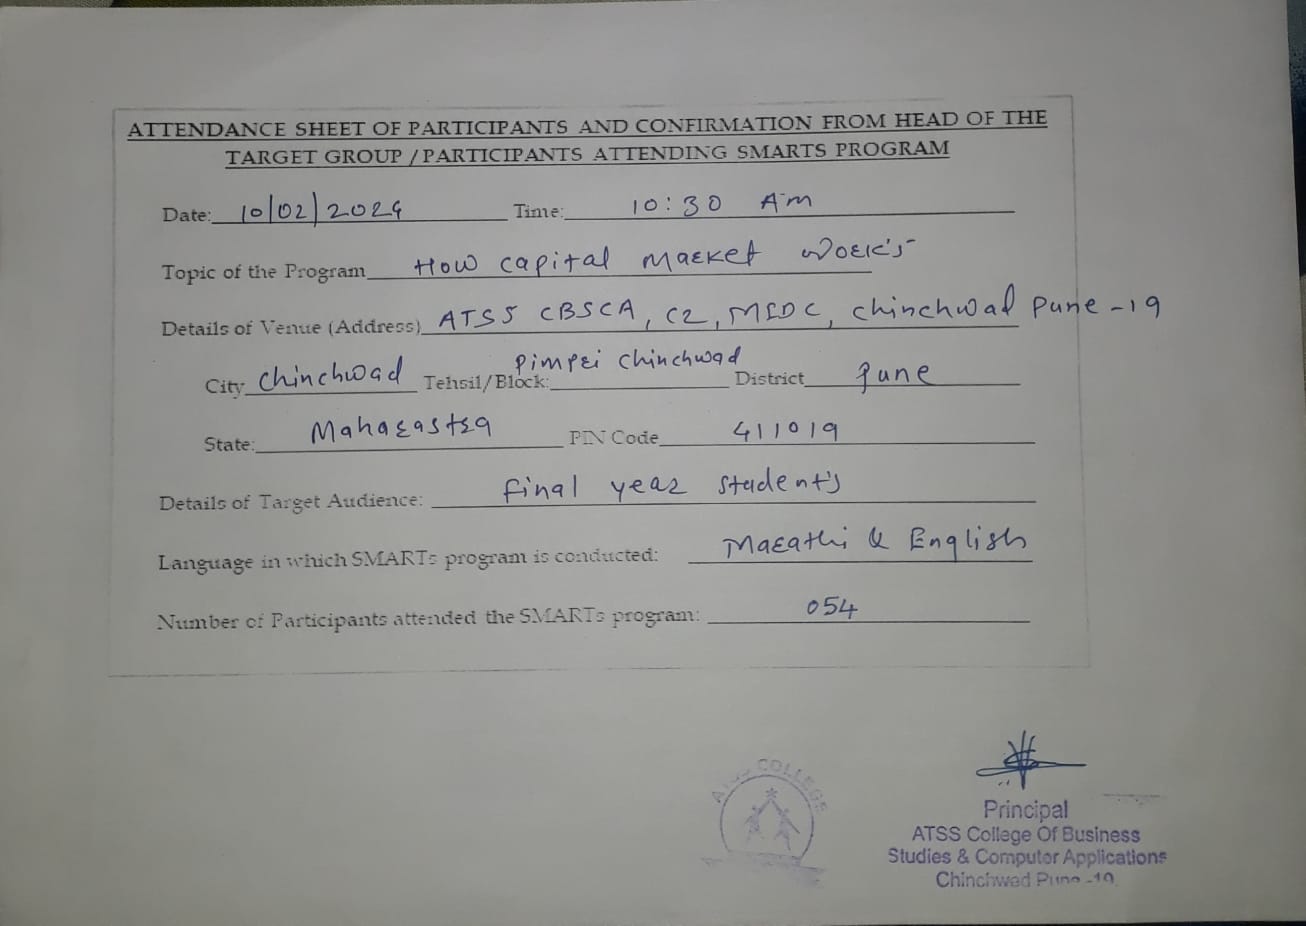 ATTENDANCE SHEET OF PARTICIPANTS AND CONFIRMATION FROM HEAD OF THE
TARGET GROUP / PARTICIPANTS ATTENDING SMARTS PROGRAM
Date: 10/02/2024 Time: 10:30 AM
Topic of the Program How capital market work's
Details of Venue (Address) ATSS CBSCA, C2, MIDC, Chinchwad Pune-19
City Chinchwad Tehsil/Block: Pimpri Chinchwad District Pune
State: Maharastra PIN Code 411019
Details of Target Audience: final year student's
Language in which SMARTs program is conducted: Marathi & English
Number of Participants attended the SMARTs program: 054
ATSS COLLEGE
Principal
ATSS College Of Business
Studies & Computer Applications
Chinchwad Pune -19